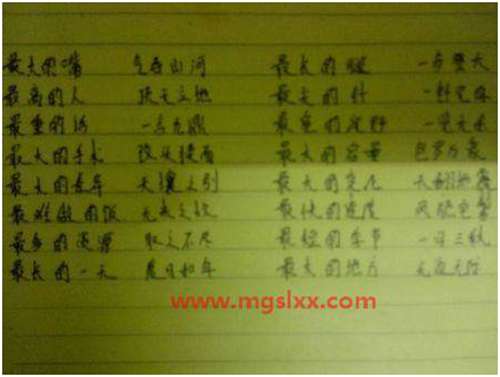 最大的嘴 气吞山河 最长的腿 一步登天
最高的人 顶天立地 最大的针 一针见血
最重的话 一言九鼎 最宽的视野 一览无余
最大的手术 改头换面 最大的容量 包罗万象
最大的差异 天壤之别 最大的变化 天翻地覆
最难做的饭 无米之炊 最快的速度 风驰电掣
最多的 取之不尽 最短的季节 一日三秋
最长的一天 度日如年 最大的地方 无边无际
www.mgslxx.com